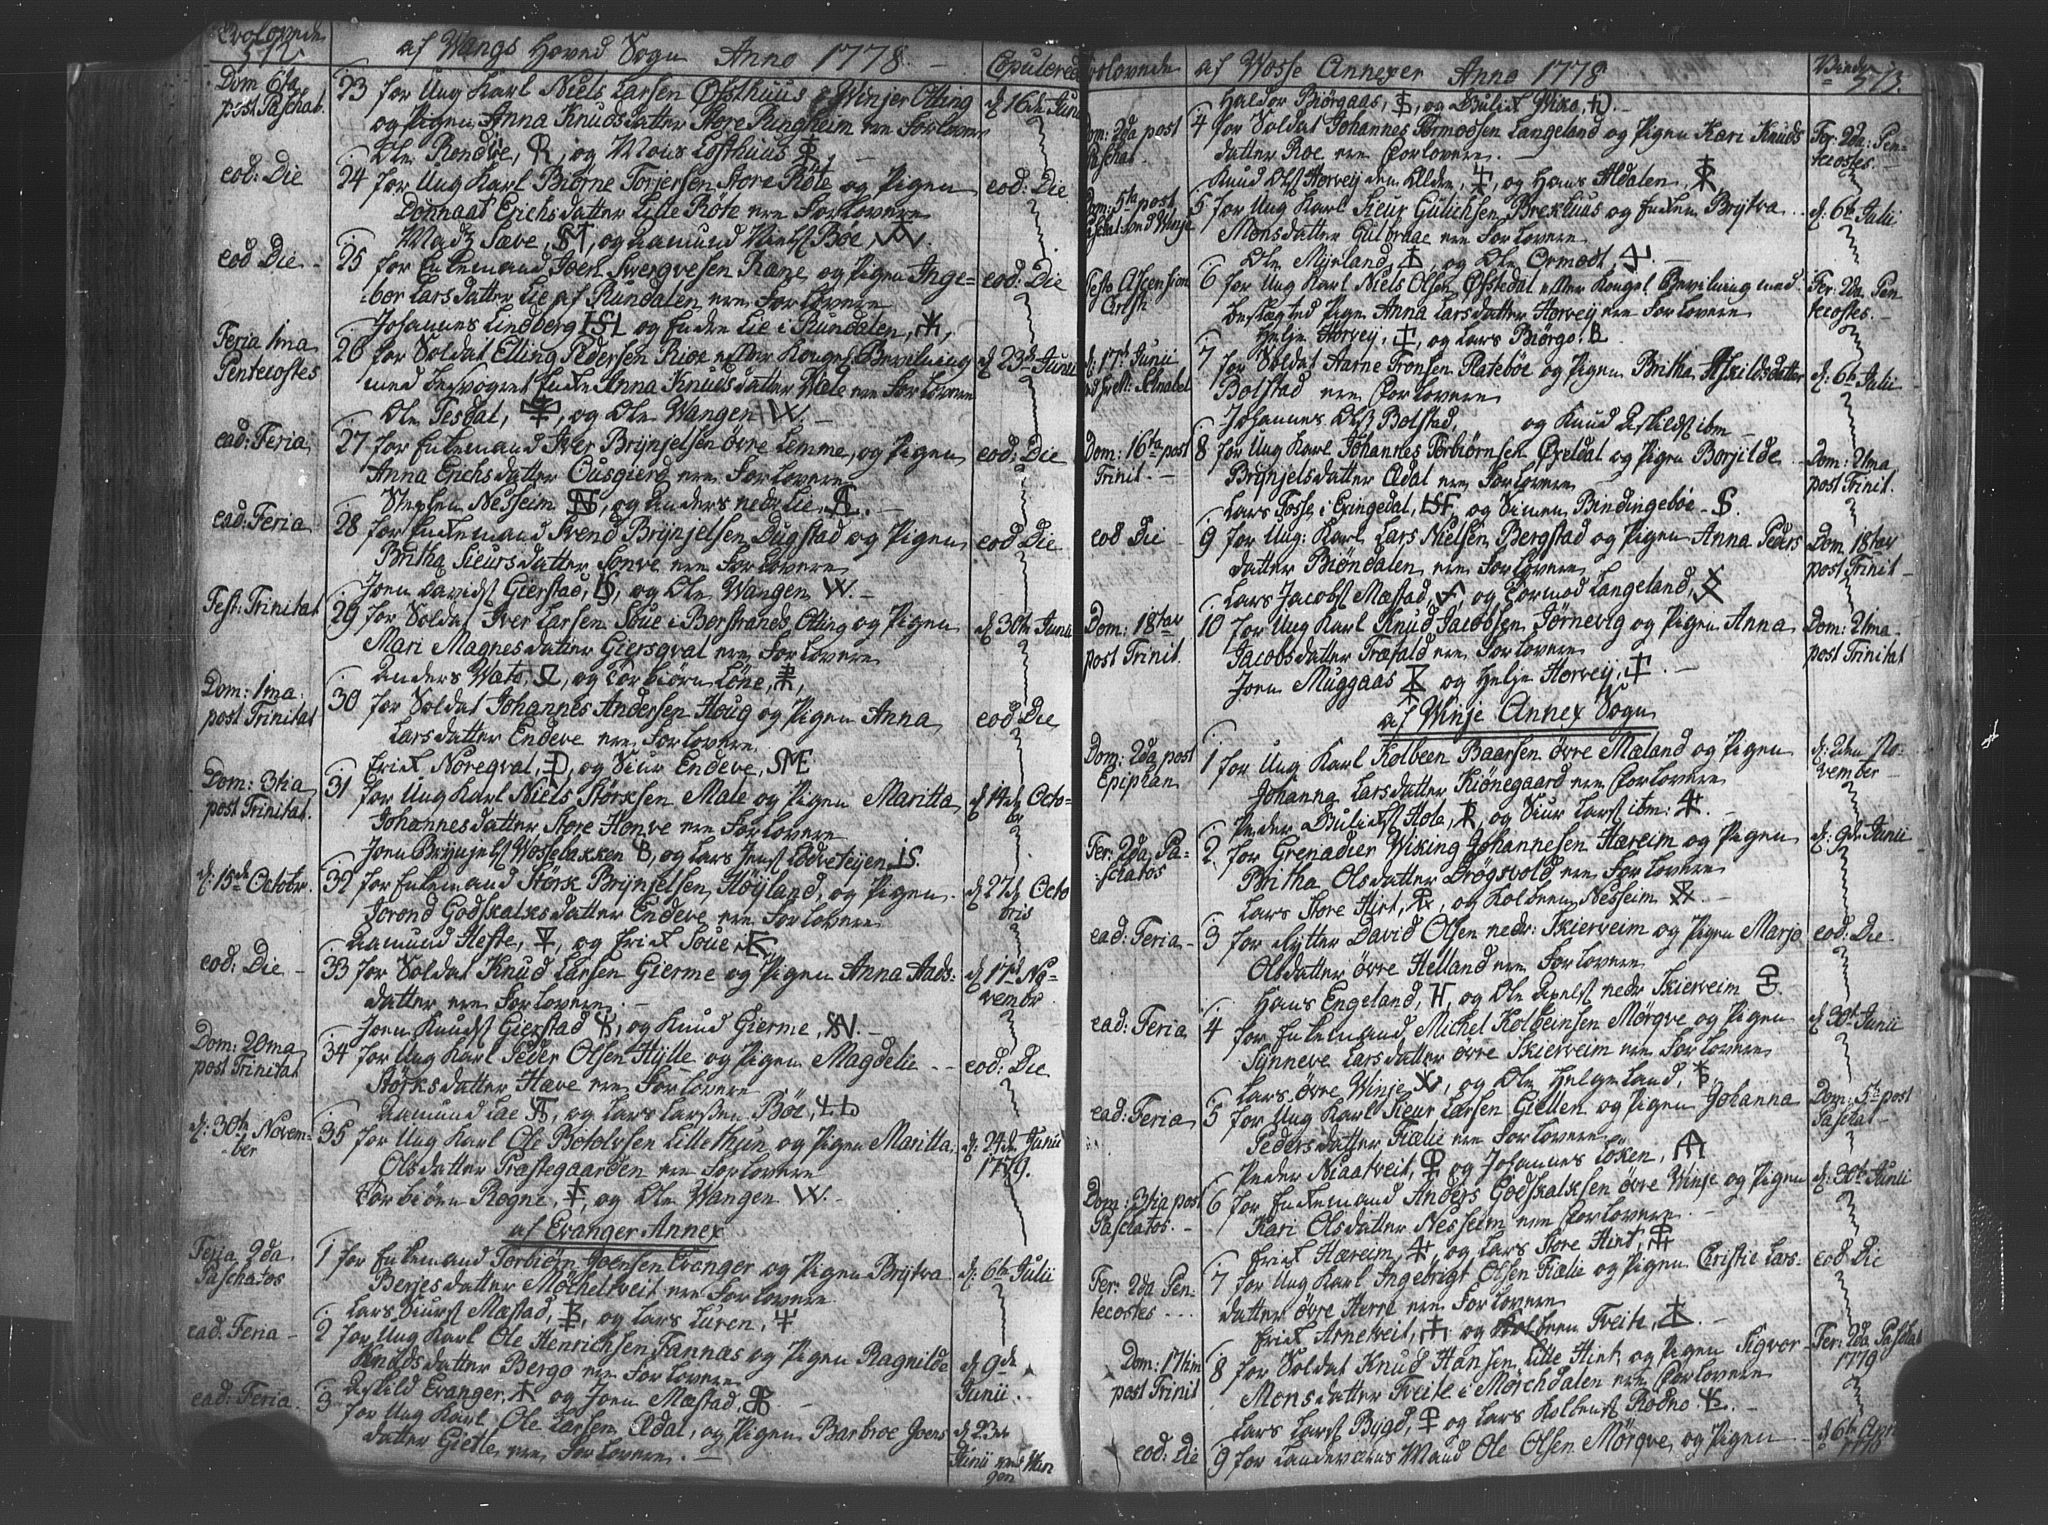 Trolovede
572.
af Wangs Hoved Sogn Anno 1778.
Copulerede
Dom 6ta post Paschat.
23 for Ung Karl Niels Larsen Øfsthuus i Winjer Otting
og Pigen Anna Knudsdatter Store Ringheim ere Forlovere
Ole Rondve, og Mons Lofthuus
d 16de Junii
eod: Die
24 for Ung Karl Biørne Torjersen Store Røte og Pigen
Erichsdatter Lille Røte ere Forlovere
Madz Sæve, og Aamund Nielss Bøe,
eod: Die
eod Die
25 for Enkemand Joen Swerqvesen Ræne og Pigen Inge-
bor Larsdatter Lie af Rundalen ere Forlovere
Johannes Lindberg og Endre Lie i Rundalen,
eod: Die
Feria 1ma Pentecostes
26 for Soldat Elling Pedersen Rioe efter Konges Bevilning
med besvogret Enke Anna Knudsdatter Wæle ere Forlovere
Ole Tesdal, og Ole Wangen W.
d 23de Junii
ead: Feria
27 for Enkemand Iver Brynjelsen øvre Lemme, og Pigen
Anna Erichsdatter Ousgierd ere Forlovere
Stephen Nesheim og Anders nedr Lie,
eod: Die
ead: Feria
28 for Enkemand Svend Brynjelsen Dugstad og Pigen
Britha Sieursdatter Sonve ere Forlovere
Joen Davidss Gierstad, og Ole Wangen W.
eod Die
Fest: Trinitat
29 for Soldat Iver Larsen Soue i Borstrands Otting og Pigen
Mari Magnesdatter Giersqval ere Forlovere
Anders Wato, og Torbiørn Løne,
d 30te Junii
Dom: 1ma post Trinitat
30 for Soldat Johannes Andersen Houg og Pigen Anna
Larsdatter Endeve ere Forlovere
Erik Noreqval, og Siur Endeve, SME
eod Die
Dom: 3tia post Trinitat.
31 for Ung Karl Niels Størksen Male og Pigen Maritta
Johannesdatter Store Honve ere Forlovere
Joen Brynjelss Wosselakken og Lars Jenss Lødveteyen IS.
d 14de Octobr
d: 15de Octobr.
32 for Enkemand Størk Brynjelsen Høyland, og Pigen
Jorond Godskalksdatter Endeve ere Forlovere
Aamund Hefte, og Erik Soue
d 27de Octobris
eod: Die
33 for Soldat Knud Larsen Gierme og Pigen Anna Aads-
datter ere Forlovere.
Joen Knudss Gierstad og Knud Gierme,
d 17de Novembr
Dom: 20ma post Trinitat
34 for Ung Karl Peder Olsen Hylle og Pigen Magdele
Størksdatter Hæve ere Forlovere
Aamund Lae og Lars Larsen Bøe,
eod: Die
d: 30te November
35 for Ung Karl Ole Botolvsen Lillethun og Pigen Maritta
Olsdatter Præstegaarden ere Forlovere
Torbiørn Rogne, og Ole Wangen W.
d: 24de Junii 1779.
af Evanger Annex
Feria 2da Paschatos
1 for Enkemand Torbiørn Joensen Evanger og Pigen Brytva
Berjesdatter Møcheltveit ere Forlovere
Lars Siurss Mæstad, og Lars Luren,
d: 6te Julii
ead. Feria
2 for Ung Karl Ole Henrichsen Fannas og Pigen Ragnilde
Knudsdatter Bergo ere Forlovere
Askild Evanger, og Joen Mæstad,
d 9de Junii
ead: Feria.
3 for Ung Karl Ole Larsen Ædal, og Pigen Barbroe Joens
datter Gietle ere Forlovere.
d 23de Junii ved Wangen
Trolovede
af Wosse Annexer Anno 1778
Viede
573.
Haldor Biørgaas, og
Dom: 2da post Paschat.
4 for Soldat Johannes Tormodsen Langeland og Pigen Kari Knuds
datter Roe ere Forlovere.
Knud Olss Horvey den Ældre, og Hans Aldalen,
Fer: 2da: Pentecostes.
Dom: 5ta post Paschat. ved Winje
5 for Ung Karl Sieur Gulichsen Brekhuus og Enken Brytva
Monsdatter Gulbraae ere Forlovere
Ole Myrland, og Ole Ormost,
d: 6te Julii
Festo Ascension Christi
6 for Ung Karl Niels Olsen Øfstedal efter Kongel Bevilning med
beslægted Pige Anna Larsdatter Horvey ere Forlovere
Helje Horvey, og Lars Biørgo. B
Fer. 2da Pentecostes.
d: 17de Junii
7 for Soldat Aarne Tronsen Platebøe og Pigen Britha Askildsdatter
Bolstad ere Forlovere
Johannes Olss Bolstad, og Knud Askildss ibm
d: 6te Julii
Dom: 16ta post Trinit.
8 for Ung Karl Johannes Torbiørnsen Exeldal og Pigen Borjilde
Brynjelsdatter Ædal ere Forlovere
Lars Fosse i Exingedal, og Simen Bindingebøe S.
Dom: 21ma post Trinit.
eod Die
9 for Ung: Karl Lars Nielsen Bergstad og Pigen Anna Peders
datter Biøndalen ere Forlovere
Lars Jacobss Mæstad, og Tormod Langeland,
Dom 18tav post Trinit
Dom: 18tav post Trinit.
10 for Ung Karl Knud Jacobsen Jørnevig og Pigen Anna
Jacobsdatter Træfald ere Forlovere
Joen Muggaas og Helje Horvey,
Dom: 21ma post Trinitat
af Winje Annex Sogn
Dom: 2da post Epiphan
1 for Ung Karl Kolbeen Baarsen øvre Mæland og Pigen
Johanna Larsdatter Kiønegaard ere Forlovere
Peder Hole, og Siur Larss ibm:
d: 2den November
Fer: 2da Paschatos
2 for Grenadier Wiking Johannesen Hæreim og Pigen
Britha Olsdatter Drøgsvold ere Forlovere
Lars Store Hirt, og Kolbeen Nesheim
d: 9de Junii
ead: Feria
3 for Rytter David Olsen nedr: Skierveim og Pigen Marjo
Olsdatter øvre Helland ere Forlovere
Hans Engeland, H, og Ole nedr Skierveim
eod: Die
ead: Feria
4 for Enkemand Michel Kolbeinsen Mørqve og Pigen
Synneve Larsdatter øvre Skierveim ere Forlovere
Lars øvre Winje, og Ole Helgeland,
d 30te Junii
ead: Feria
5 for Ung Karl Sieur Larsen Giellen og Pigen Johanna
Pedersdatter Fiælie ere Forlovere
Peder Niaatveit, og Johannes Løken,
Dom: 5ta post Paschat
Dom: 3tia post Paschatos.
6 for Enkemand Anders Godskalksen øvre Winje og Pigen
Kari Olsdatter Nesheim ere Forlovere
Erik Hæreim, og Lars Store Hirt,
d: 30te Junii
Fer: 2da Pentecostes
7 for Ung Karl Ingebrigt Olsen Fiælie og Pigen Christie Lars-
datter øvre Herre ere Forlovere
Erik Arnetveit, og Kolbeen Tveite,
eod: Die
Dom: 17tim post Trinit
8 for Soldat Knud Hansen Lille Hirt, og Pigen Sigvor
Monsdatter Tveite i Mørchdalen ere Forlovere
Lars Larss Bygd, og Lars Kolbenss Rodno
Fer: 2da Paschat 1779
eod: Die
9 for Landeværns Mand Ole Olsen Mørqve, og Pigen
d: 6te April